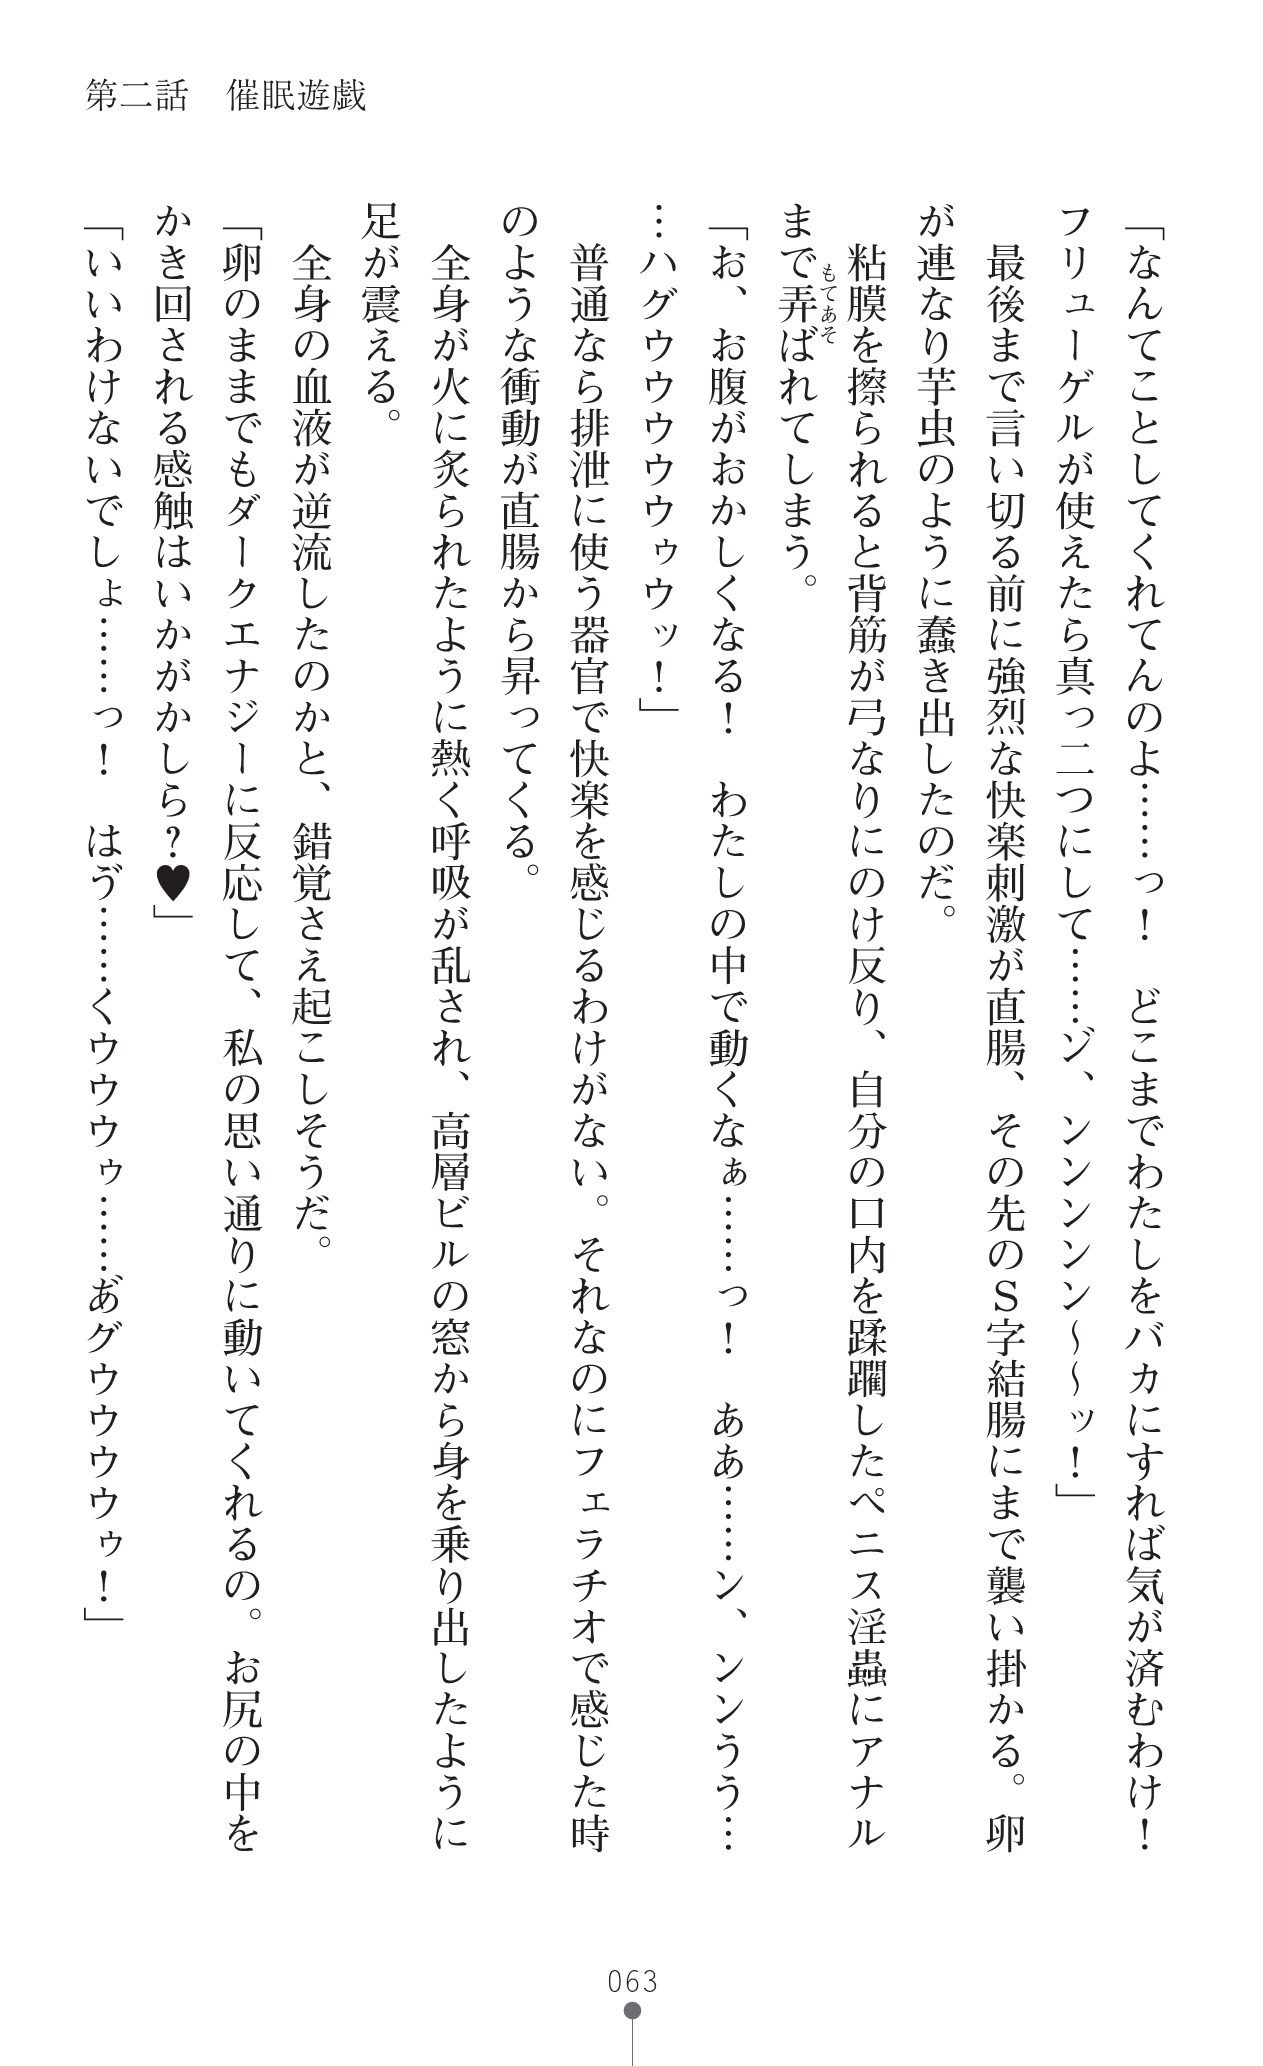 第二話　催眠遊戯
「なんてことしてくれてんのよ……っ！　どこまでわたしをバカにすれば気が済むわけ！
フリューゲルが使えたら真っ二つにして……ゾ、ンンンンン～～ッ！」
　最後まで言い切る前に強烈な快楽刺激が直腸、その先のＳ字結腸にまで襲い掛かる。卵
が連なり芋虫のように蠢き出したのだ。
　粘膜を擦られると背筋が弓なりにのけ反り、自分の口内を蹂躙したペニス淫蟲にアナル
まで弄ばれてしまう。
もてあそ
「お、お腹がおかしくなる！　わたしの中で動くなぁ……っ！　ああ……ン、ンンうう…
…ハグウウウウウゥウッ！」
　普通なら排泄に使う器官で快楽を感じるわけがない。それなのにフェラチオで感じた時
のような衝動が直腸から昇ってくる。
　全身が火に炙られたように熱く呼吸が乱され、高層ビルの窓から身を乗り出したように
足が震える。
　全身の血液が逆流したのかと、錯覚さえ起こしそうだ。
「卵のままでもダークエナジーに反応して、私の思い通りに動いてくれるの。お尻の中を
かき回される感触はいかがかしら？♥」
「いいわけないでしょ……っ！　はゔ……くウウウゥ……あ゙グウウウウゥ！」
063